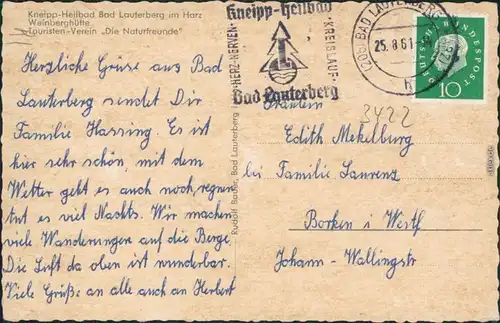 Kneipp-Heilbad Bad Lauterberg im Harz
Weinberghütte
Touristen-Verein „Die Naturfreunde"
Herzliche Grüße aus Bad
Lauterberg sendet Dir
Familie Harsing. Es ist
hier sehr schön, mit dem
Wetter geht es auch noch, regnen
tut es viel Nachts. Wir machen
viele Wanderungen auf die Berge.
Die Luft da oben ist wunderbar.
Viele Grüße an alle auch an Herbert
Rudolf Bader, Bad Lauterberg
Kneipp-Heilbad
HERZ-NERVEN-
KREISLAUF
Bad Lauterberg
(20b) BAD LAUTERBERG
25.8.61
h
DEUTSCHE BUNDESPOST
10
3422
Fräulein
Edith Mekelburg
bei Familie Laurenz
Borken i Westf
Johann-Wallingstr